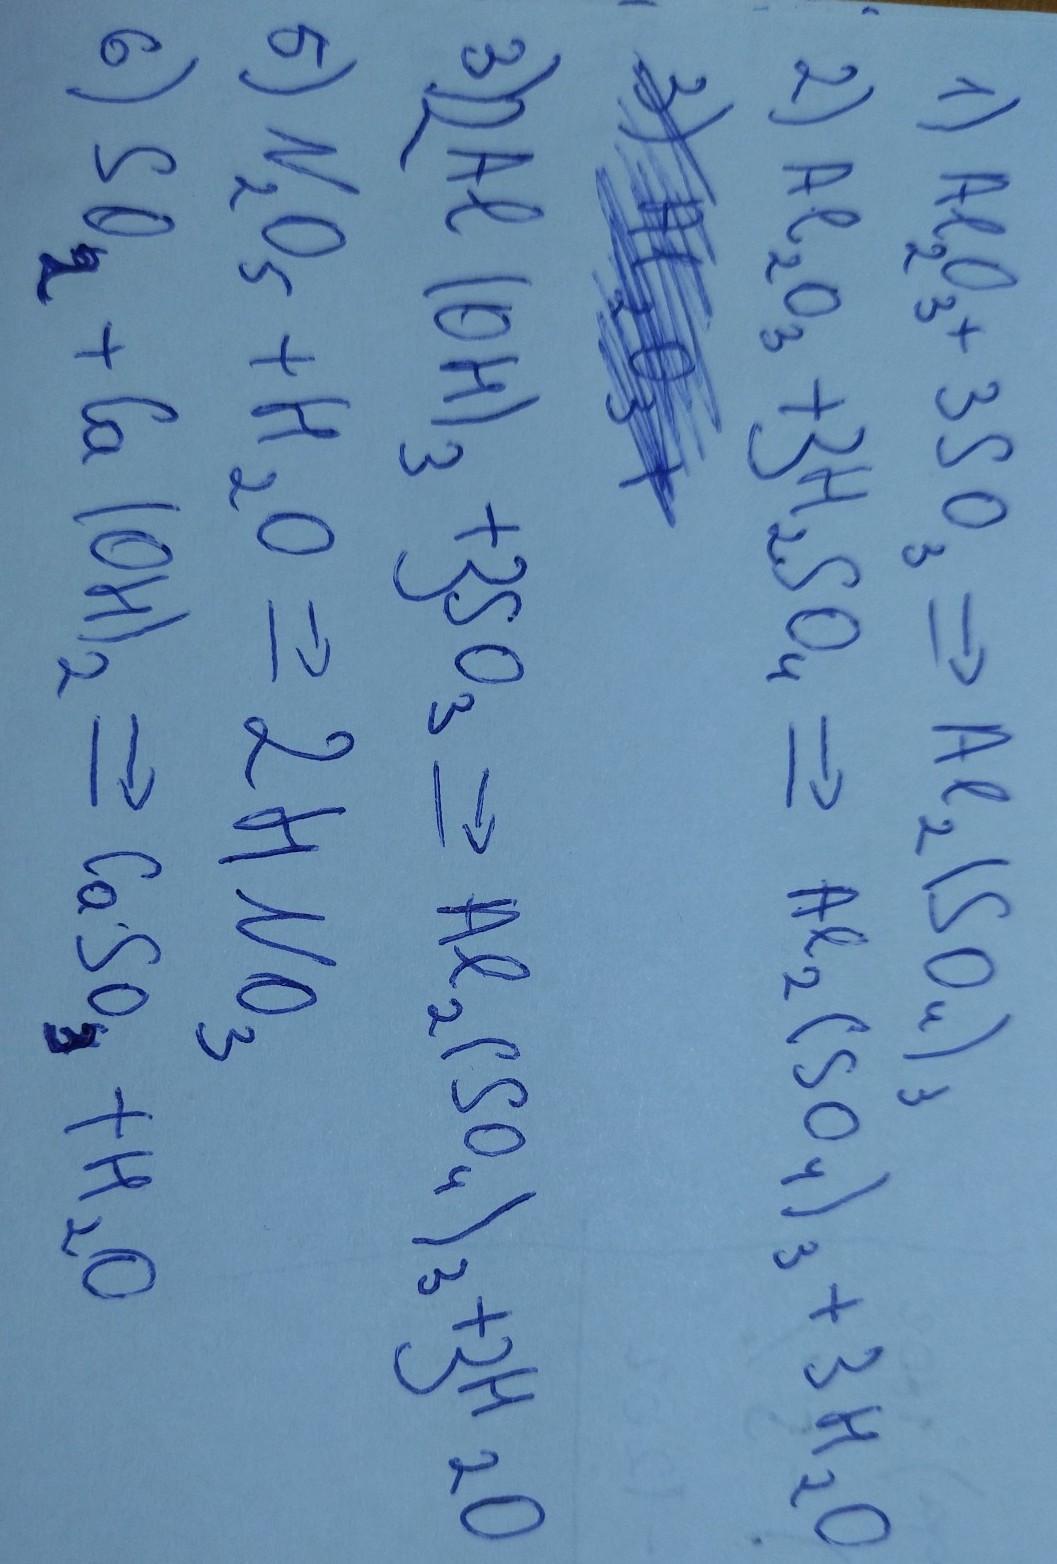 1) Al₂O₃ + 3SO₃ ⇒ Al₂(SO₄)₃
2) Al₂O₃ + 3H₂SO₄ ⇒ Al₂(SO₄)₃ + 3H₂O
3) 2Al(OH)₃ + 3SO₃ ⇒ Al₂(SO₄)₃ + 3H₂O
5) N₂O₅ + H₂O ⇒ 2HNO₃
6) SO₂ + Ca(OH)₂ ⇒ CaSO₃ + H₂O